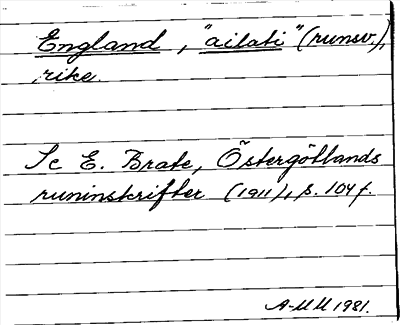 England, "ailati" (runsv.),
rike.
Se E. Brate, Östergötlands
runinskrifter (1911), s. 104 f.
A-MM 1981.